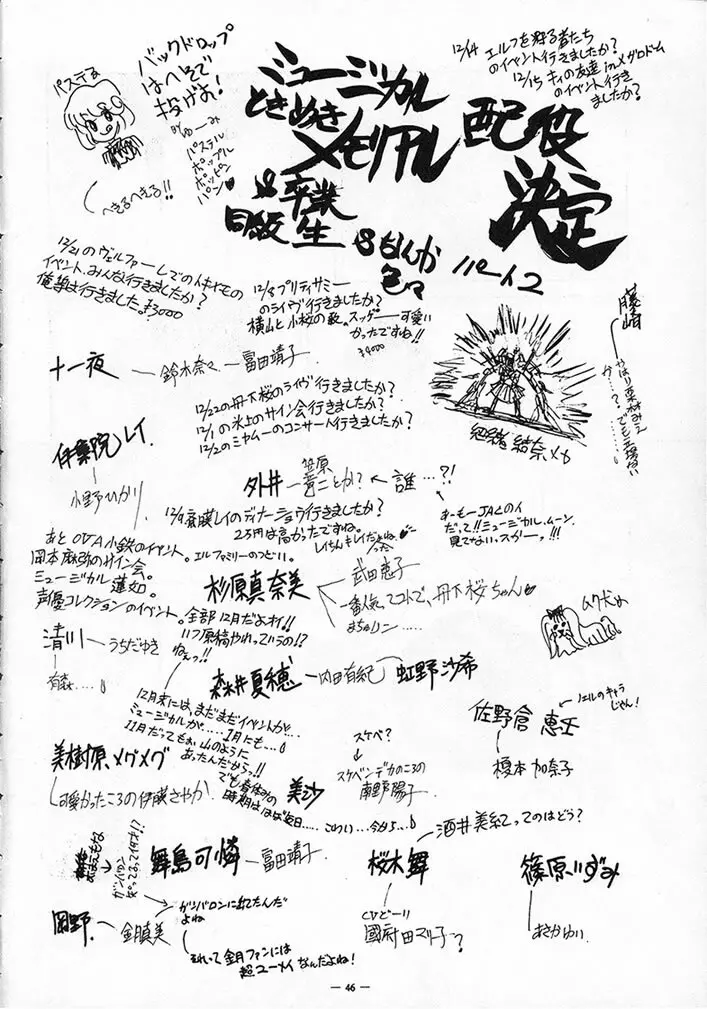 パステる
バックドロップ
はへそで
投げろ!
パステル
ポップル
ポッピン
パン♥
へきるへきる!!
12/14 エルフを狩る者たち
のイベント行きましたか?
12/15 キィの友達 in メグロドーム
のイベント行き
ましたか?
ミュージカル
ときめき
メモリアル
配役
決定
卒業
同級生
なんか
色々
パート2
12/21のヴェルファーレでの
イベント、みんな行きましたか?
俺達は行きました。¥3000
12/8プリティサミー
のライヴ行きましたか?
横山と小桜の歌。スッゲー可愛い
かったですね!!
¥4000
藤崎
やはり栗林みえ
か……?でも
十一夜 ― 鈴木奈々 ― 富田靖子
12/22の丹下桜のライヴ行きましたか?
12/1の氷上のサイン会行きましたか?
12/2のミヤムーのコンサート行きましたか?
紐緒結奈メカ
伊集院レイ
小野ひかり
外井 ― 笠原
とか? ← 誰…?!
12/9 綾膜レイのディナーショウ行きましたか?
2万円は高かったですね。
だって!!ミュージカル、ムーン、
見てないっスかー!!!
あとOVA小鉄のイベント。エルファミリーのつどい。
岡本麻弥のサイン会。
ミュージカル蓮如。
声優コレクションのイベント。全部12月だよオイ!!
いつ原稿やれっていうの!?
ねぇっ!!
杉原真奈美
武田恵子
一番人気ってコトで、丹下桜ちゃん♥
まちゅリン……
ムク犬め
清川 ― うちだゆき
有森……
森井夏穂 ― 内田有紀 ― 虹野沙希
12月末には、まだまだイベントが…
ミュージカルが……1月にも…
11月だってもぉ山のように
あったんだからっ!!
でも春休みの
時期はほぼ毎日……こわい…今から…
佐野倉 恵壬
ノエルのキャラ
じゃん!
榎本加奈子
美樹原メグメグ
可愛かったころの伊藤さやか
美沙
スケベ?
スケベンデカのころの
南野陽子
舞島可憐 ― 富田靖子
桜木舞
酒井美紀ってのはどう?
CVどーり
國府田マリ子?
篠原いずみ
あさかゆい
岡野 ― 金月真美
ガンバロンに出てたんだ
よね
それって金月ファンには
超ユーメイなんだよね!
― 46 ―